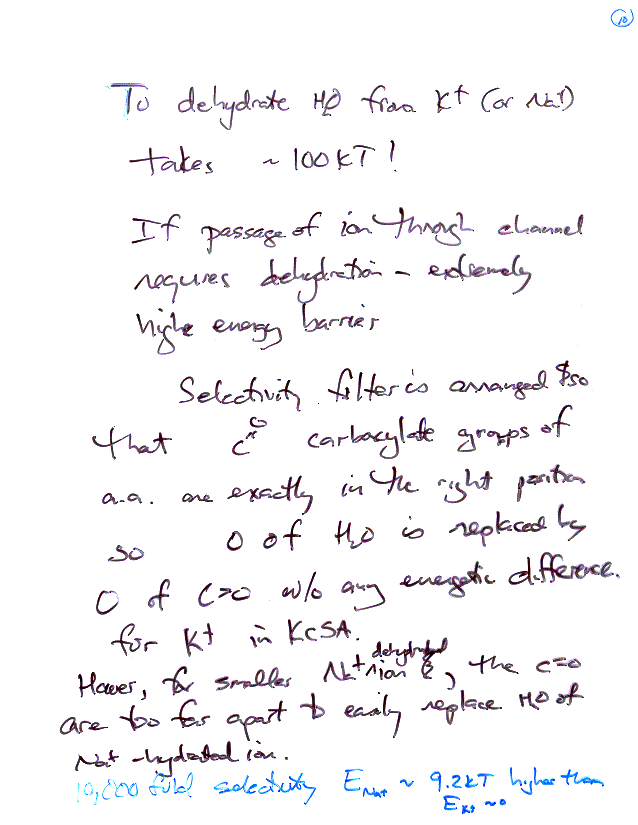 10
To dehydrate H2O from K+ (or Na+)
takes ~ 100 kT !
If passage of ion through channel
requires dehydration – extremely
high energy barrier
Selectivity filter is arranged so
that C=O carboxylate groups of
a.a. are exactly in the right position
so O of H2O is replaced by
O of C=O w/o any energetic difference.
for K+ in KcSA.
However, for smaller Na+ ion dehydrated, the C=O
are too far apart to easily replace H2O of
Na+ -hydrated ion.
10,000 fold selectivity ENa+ ~ 9.2kT higher than
EK+ ~0